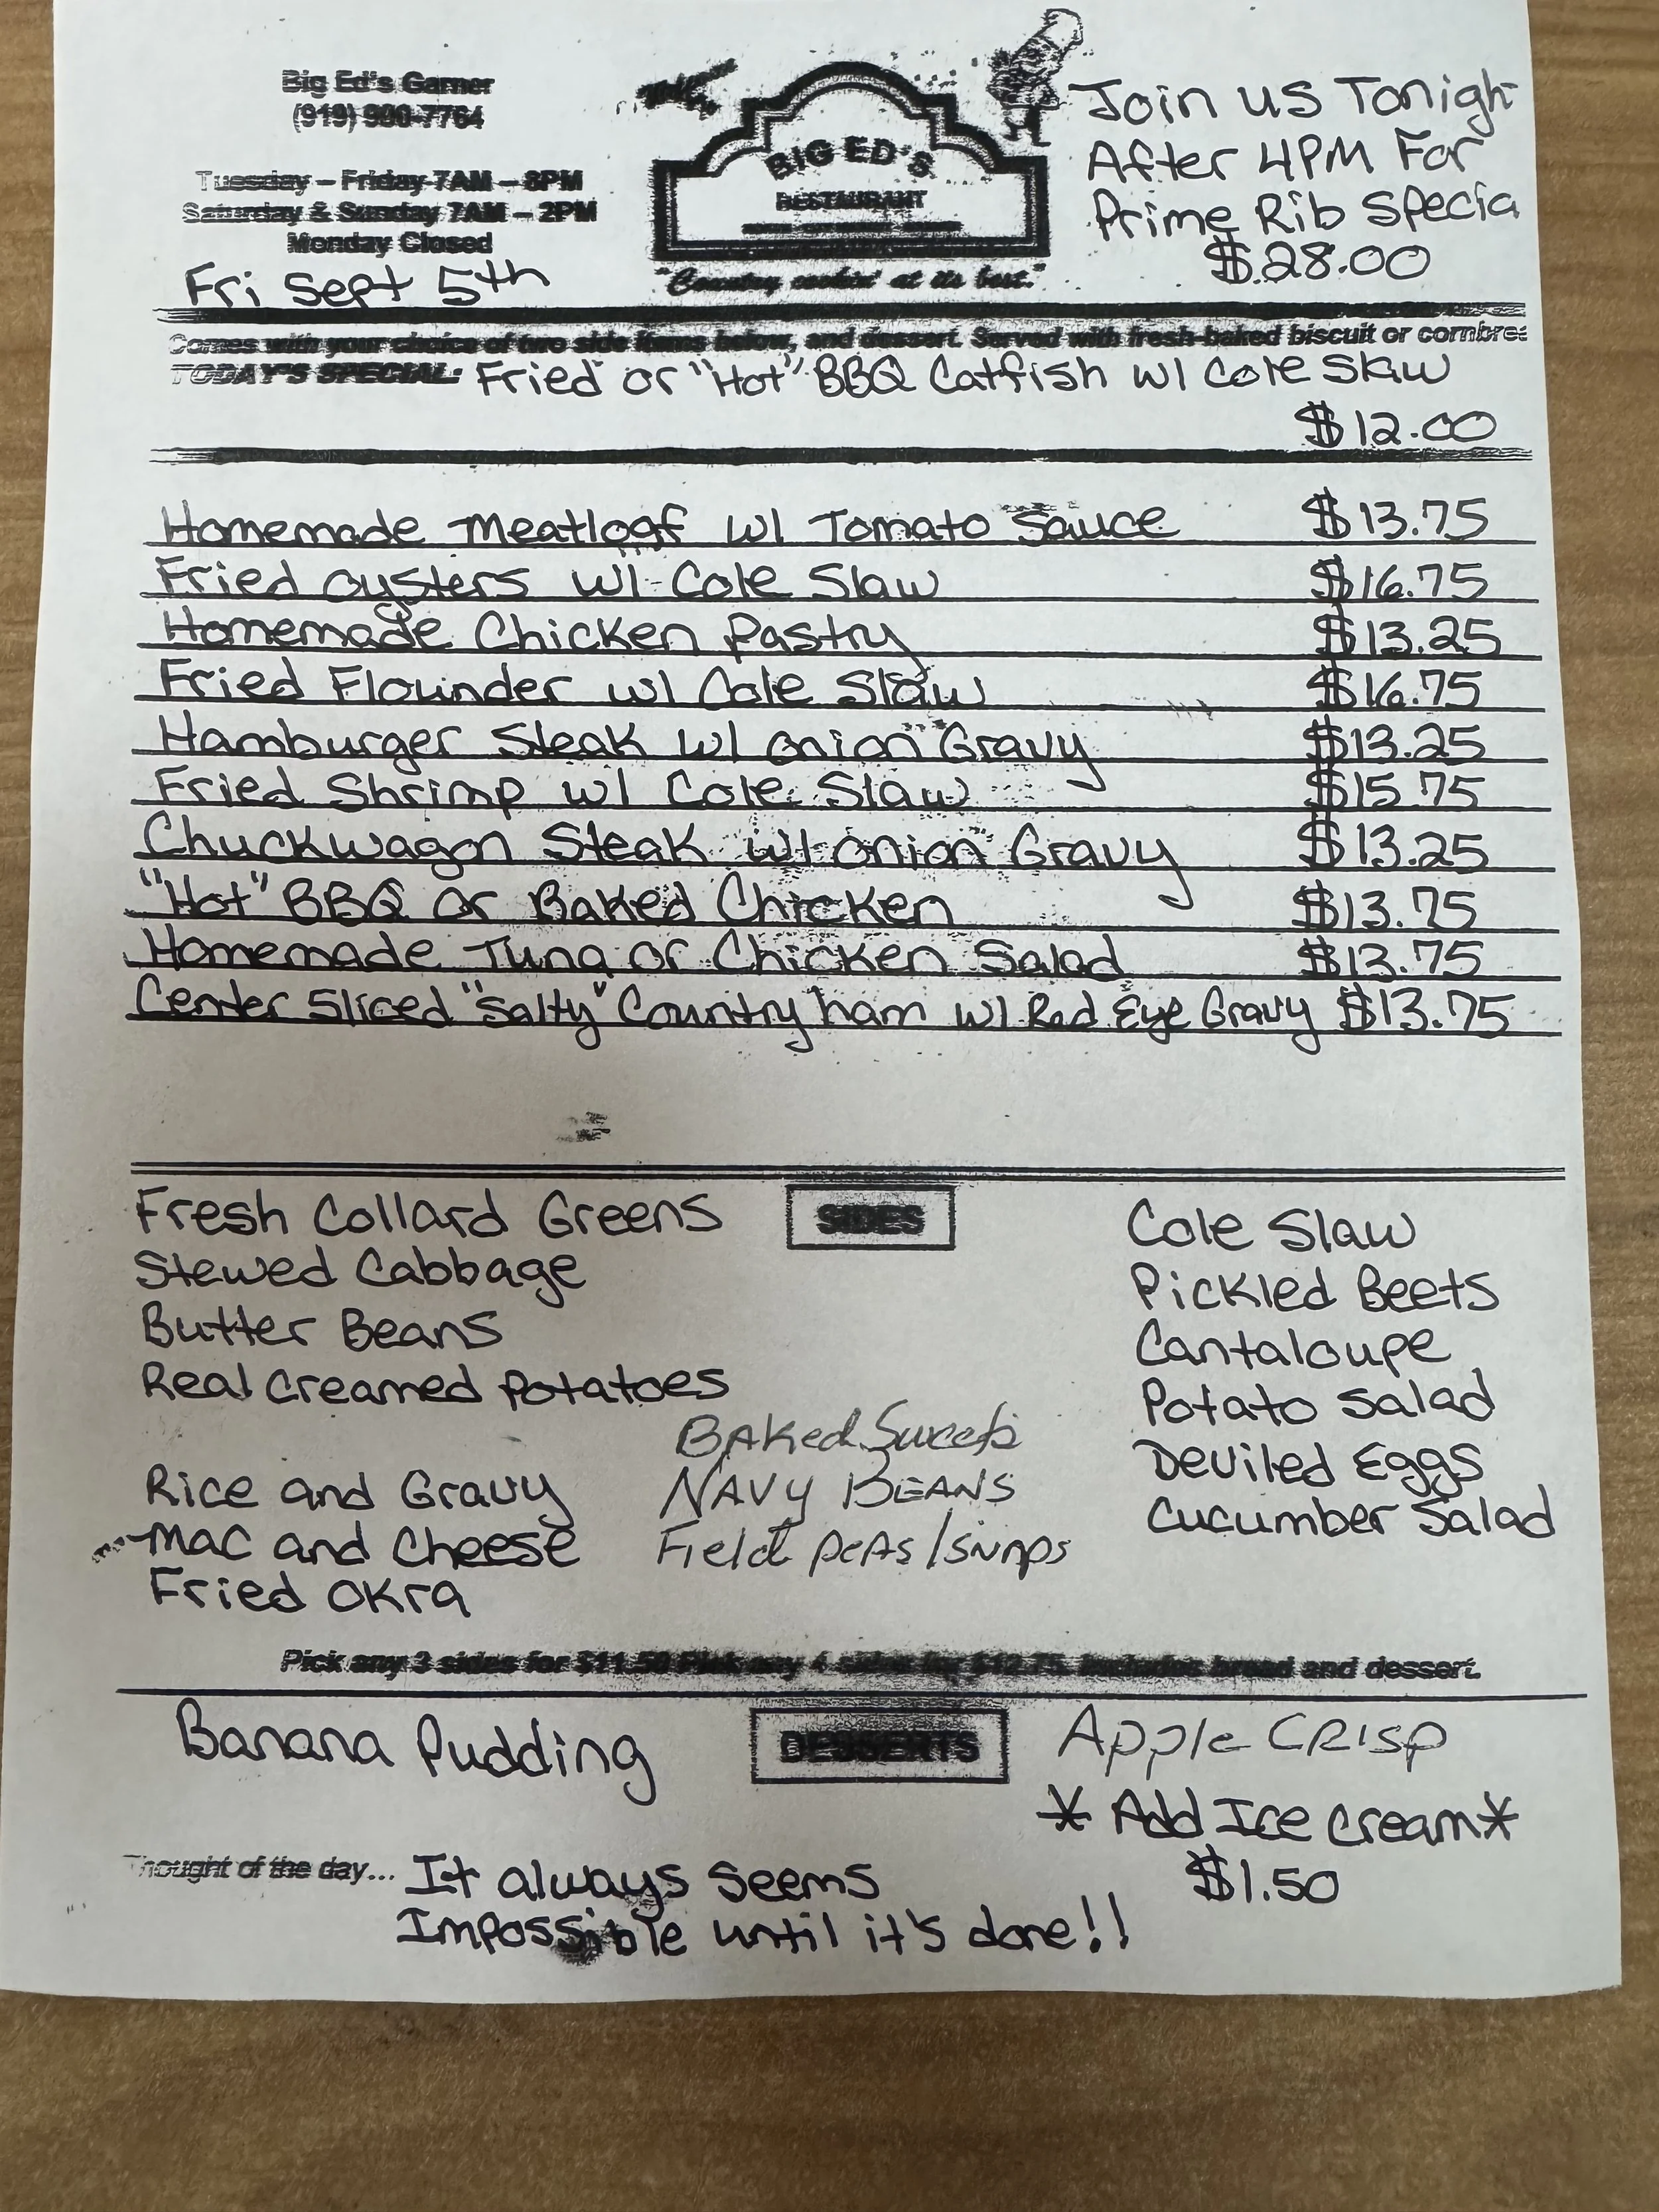 Big Ed's Garner
(919) 900-7764
Tuesday – Friday 7AM – 8PM
Saturday & Sunday 7AM – 2PM
Monday Closed
Fri Sept 5th
BIG ED'S
RESTAURANT
"Country cookin' at its best."
Join us Tonigh
After 4PM For
Prime Rib Specia
$28.00
Comes with your choice of two side items below, and dessert. Served with fresh-baked biscuit or cornbre
TODAY'S SPECIAL: Fried or "Hot" BBQ Catfish w/ Cole Slaw
$12.00
Homemade Meatloaf w/ Tomato Sauce $13.75
Fried Oysters w/ Cole Slaw $16.75
Homemade Chicken Pastry $13.25
Fried Flounder w/ Cole Slaw $16.75
Hamburger Steak w/ Onion Gravy $13.25
Fried Shrimp w/ Cole Slaw $15.75
Chuckwagon Steak w/ Onion Gravy $13.25
"Hot" BBQ Or Baked Chicken $13.75
Homemade Tuna or Chicken Salad $13.75
Center Sliced "Salty" Country ham w/ Red Eye Gravy $13.75
SIDES
Fresh Collard Greens
Stewed Cabbage
Butter Beans
Real Creamed Potatoes
Rice and Gravy
Mac and Cheese
Fried Okra
Baked Sweets
NAVY BEANS
Field peas/snaps
Cole Slaw
Pickled Beets
Cantaloupe
Potato Salad
Deviled Eggs
Cucumber Salad
Pick any 3 sides for $11.50 Pick any 4 sides for $12.75. Includes bread and dessert.
DESSERTS
Banana Pudding
Apple CRISP
* Add Ice Cream *
$1.50
Thought of the day... It always seems
Impossible until it's done!!